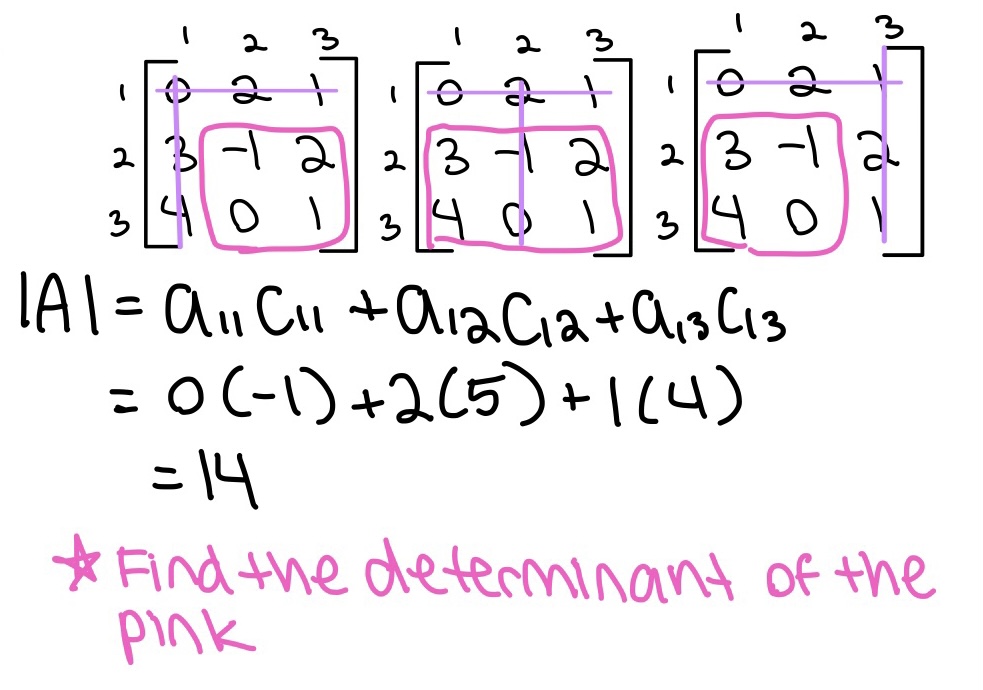 1 2 3 1 2 3 1 2 3
1 0 2 1 1 0 2 1 1 0 2 1
2 3 -1 2 2 3 -1 2 2 3 -1 2
3 4 0 1 3 4 0 1 3 4 0 1
|A| = a₁₁c₁₁ + a₁₂c₁₂ + a₁₃c₁₃
= 0(-1) + 2(5) + 1(4)
= 14
☆ Find the determinant of the
pink